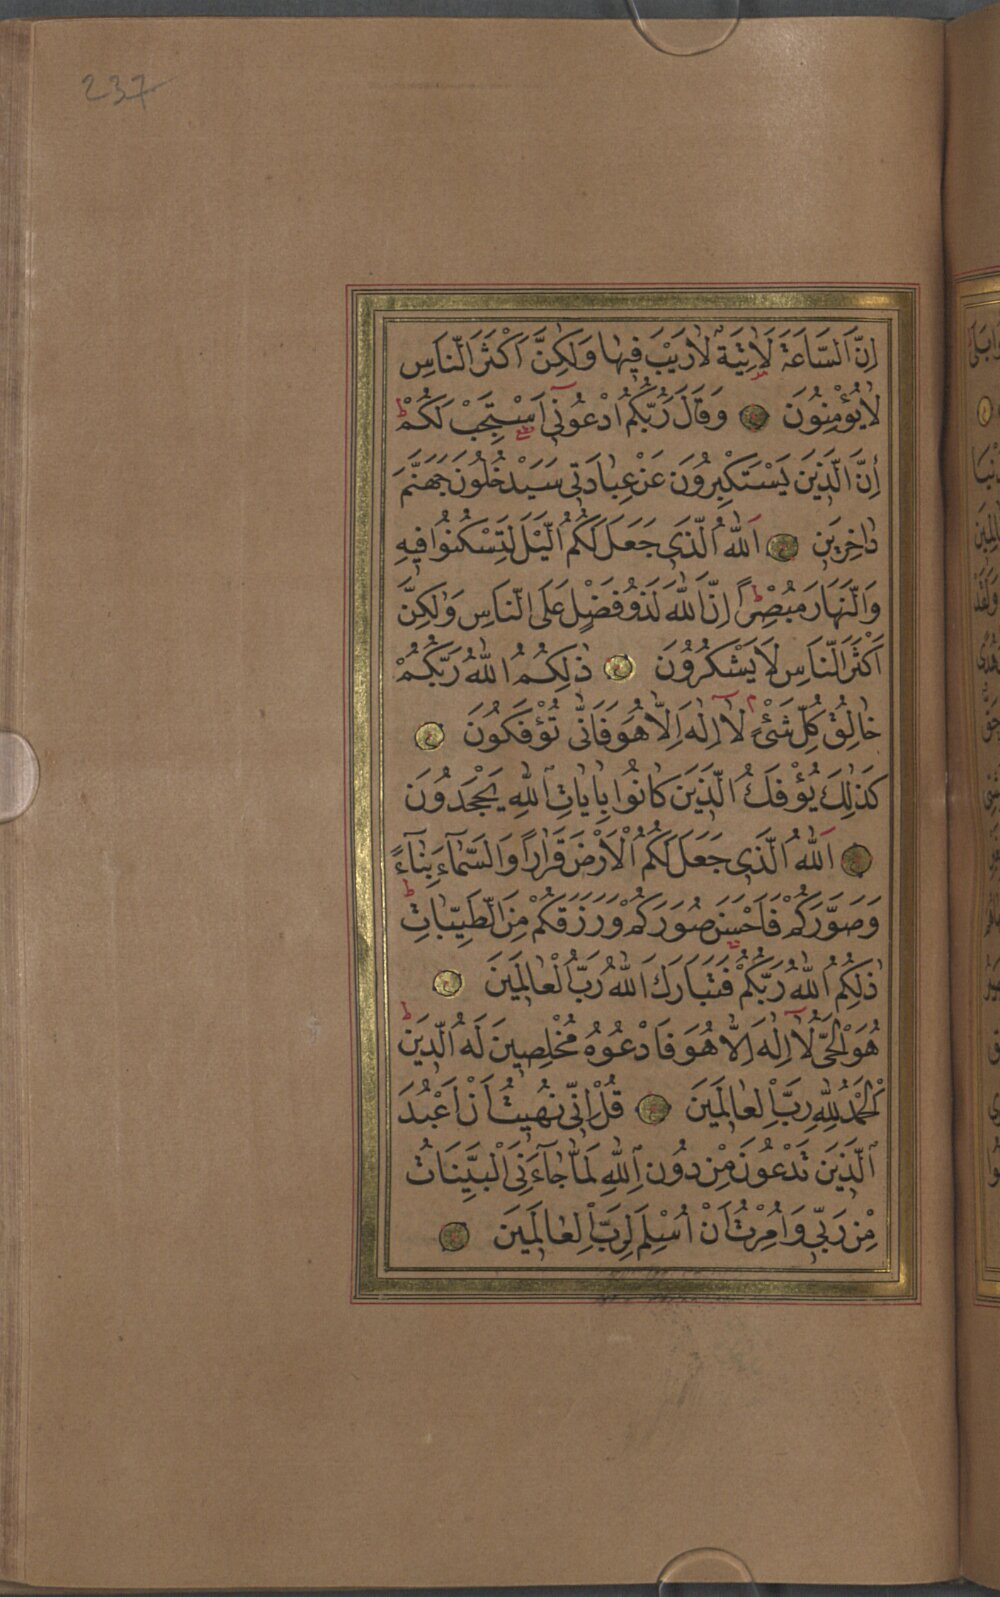 237
اِنَّ السَّاعَةَ لَاٰتِيَةٌ لَارَيْبَ فِيهَا وَلٰكِنَّ اَكْثَرَ النَّاسِ
لَا يُؤْمِنُونَ وَقَالَ رَبُّكُمُ ادْعُونِي اَسْتَجِبْ لَكُمْ
اِنَّ الَّذِينَ يَسْتَكْبِرُونَ عَنْ عِبَادَتِي سَيَدْخُلُونَ جَهَنَّمَ
دَاخِرِينَ اَللّٰهُ الَّذِي جَعَلَ لَكُمُ الَّيْلَ لِتَسْكُنُوا فِيهِ
وَالنَّهَارَ مُبْصِرًا اِنَّ اللّٰهَ لَذُو فَضْلٍ عَلَى النَّاسِ وَلٰكِنَّ
اَكْثَرَ النَّاسِ لَا يَشْكُرُونَ ذٰلِكُمُ اللّٰهُ رَبُّكُمْ
خَالِقُ كُلِّ شَيْءٍ لَا اِلٰهَ اِلَّا هُوَ فَاَنّٰى تُؤْفَكُونَ
كَذٰلِكَ يُؤْفَكُ الَّذِينَ كَانُوا بِاٰيَاتِ اللّٰهِ يَجْحَدُونَ
اَللّٰهُ الَّذِي جَعَلَ لَكُمُ الْاَرْضَ قَرَارًا وَالسَّمَاءَ بِنَاءً
وَصَوَّرَكُمْ فَاَحْسَنَ صُوَرَكُمْ وَرَزَقَكُمْ مِنَ الطَّيِّبَاتِ
ذٰلِكُمُ اللّٰهُ رَبُّكُمْ فَتَبَارَكَ اللّٰهُ رَبُّ الْعَالَمِينَ
هُوَ الْحَيُّ لَا اِلٰهَ اِلَّا هُوَ فَادْعُوهُ مُخْلِصِينَ لَهُ الدِّينَ
اَلْحَمْدُ لِلّٰهِ رَبِّ الْعَالَمِينَ قُلْ اِنِّي نُهِيتُ اَنْ اَعْبُدَ
الَّذِينَ تَدْعُونَ مِنْ دُونِ اللّٰهِ لَمَّا جَاءَنِيَ الْبَيِّنَاتُ
مِنْ رَبِّي وَاُمِرْتُ اَنْ اُسْلِمَ لِرَبِّ الْعَالَمِينَ